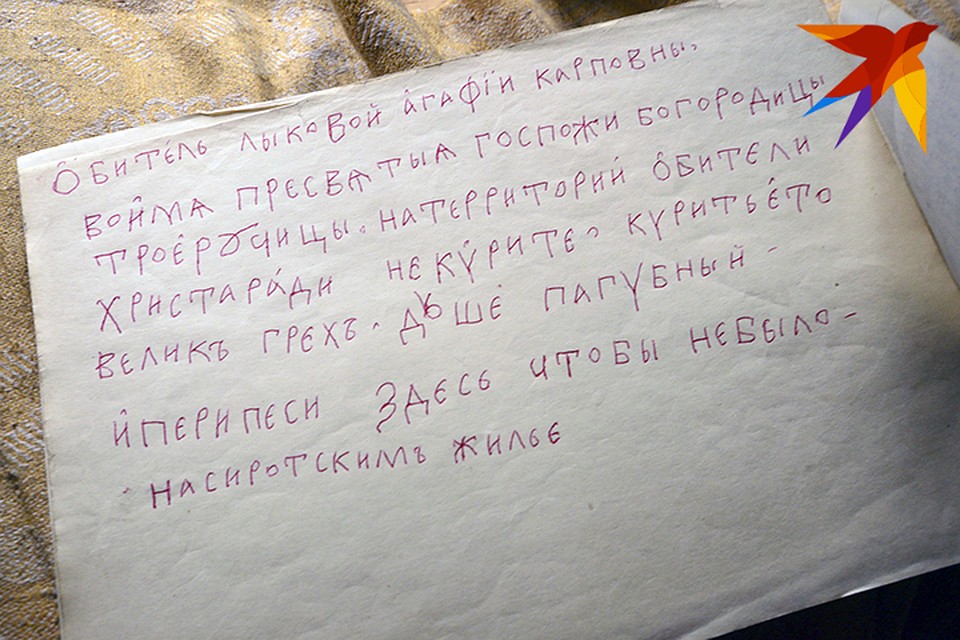 Обите́ль лыковой а҆гафі́и карповны.
воймѧ пресватыѧ госпожи богородицы
трое́рꙋчицы. натерриторий о҆бители
христара́ди некꙋ́рите, кꙋритье́то
великъ грехъ. дꙋше́ пагꙋбный -
йперипеси здесь чтобы небыло -
насиротскимъ жилье